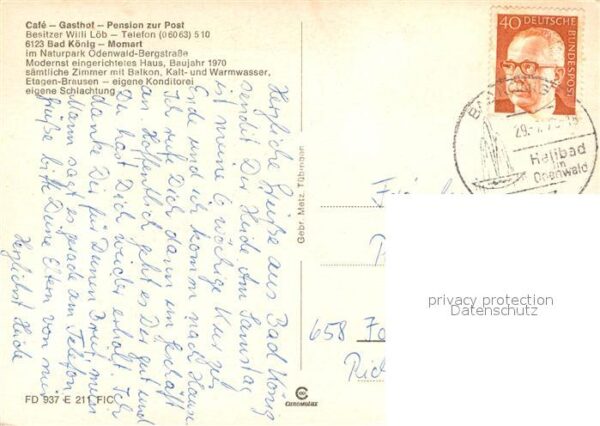 Café – Gasthof – Pension zur Post
Besitzer Willi Löb – Telefon (06063) 510
6123 Bad König – Momart
im Naturpark Odenwald-Bergstraße
Modernst eingerichtetes Haus, Baujahr 1970
sämtliche Zimmer mit Balkon, Kalt- und Warmwasser,
Etagen-Brausen – eigene Konditorei
eigene Schlachtung
Herzliche Grüße aus Bad König
sendet Dir Heide. Am Samstag
ist meine 6 wöchige Kur zu
Ende und ich komm nach Hause
Ich ruf Dich dann im Geschäft
an. Hoffentlich geht es Dir gut und
Du hast Dich weiter erholt. Ich
danke Dir für Deinen Brief, mein
Mann sagt es gerade am Telefon
Grüße bitte Deine Eltern von mir
Herzlichst Heide
FD 937 E 211 FIC
Gebr. Metz, Tübingen
CHROMOLUX
40 DEUTSCHE
BUNDESPOST
BAD KÖNIG
29.
Heilbad
im
Odenwald
658
privacy protection
Datenschutz